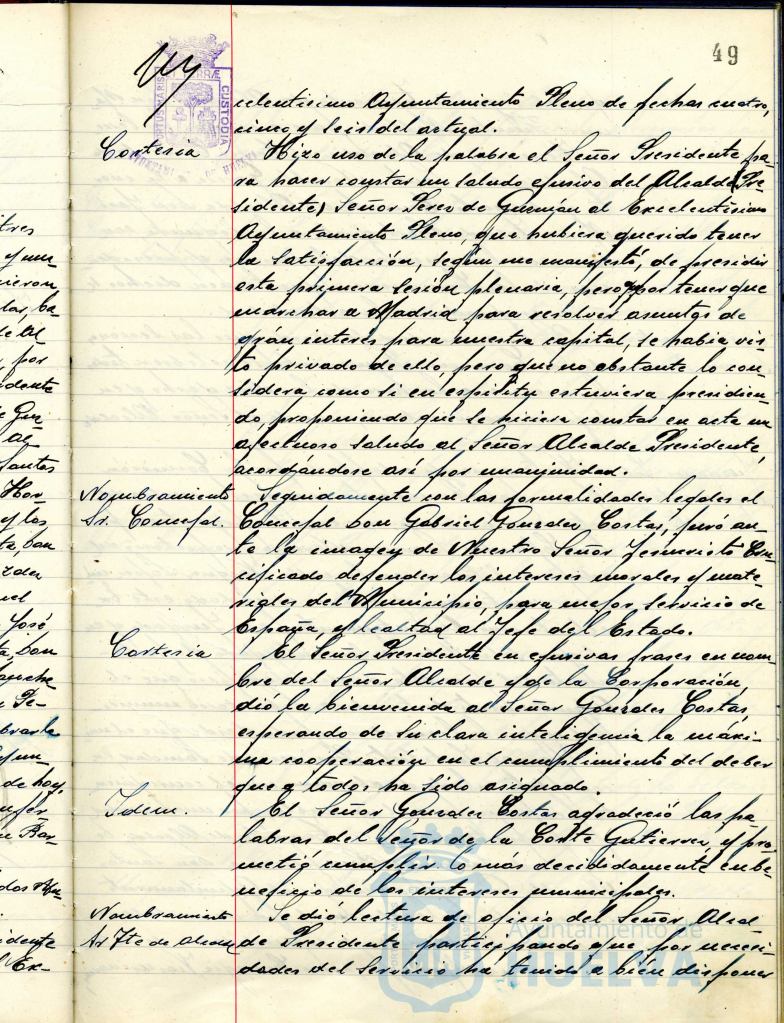 49
celentisimo Ayuntamiento Pleno de fechas cuatro,
cinco y seis del actual.
Cortesia
Hizo uso de la palabra el Señor Presidente pa-
ra hacer constar un saludo efusivo del Alcalde (Pre-
sidente) Señor Perez de Guzmán al Excelentísimo
Ayuntamiento Pleno, que hubiera querido tener
la satisfacción, según me manifestó, de presidir
esta primera sesión plenaria, pero por tener que
marchar a Madrid para resolver asuntos de
grán interés para nuestra capital, se habia vis-
to privado de ello, pero que no obstante lo con-
sidera como si en espiritu estuviera presidien-
do, proponiendo que se hiciera constar en acta un
afectuoso saludo al Señor Alcalde Presidente,
acordándose así por unanimidad.
Nombramiento
Sr. Concejal.
Seguidamente con las formalidades legales el
Concejal Don Gabriel Gonzalez Costas, juró an-
te la imagen de Nuestro Señor Jesucristo Cru-
cificado defender los intereses morales y mate-
riales del Municipio, para mejor servicio de
España, y lealtad al Jefe del Estado.
Cortesia
El Señor Presidente en efusivas frases en nom-
bre del Señor Alcalde y de la Corporación,
dió la bienvenida al Señor Gonzalez Costas,
esperando de su clara inteligencia la máxi-
ma cooperación en el cumplimiento del deber
que a todos ha sido asignado.
Idem.
El Señor Gonzalez Costas agradeció las pa-
labras del Señor de la Corte Gutierrez, y pro-
metió cumplir lo más decididamente en be-
neficio de los intereses municipales.
Nombramiento
Sr Tte de Alcalde
Se dió lectura de oficio del Señor Alcal-
de Presidente participando que por necesi-
dades del servicio ha tenido a bién disponer
CUSTODIA
Ayuntamiento de
HUELVA